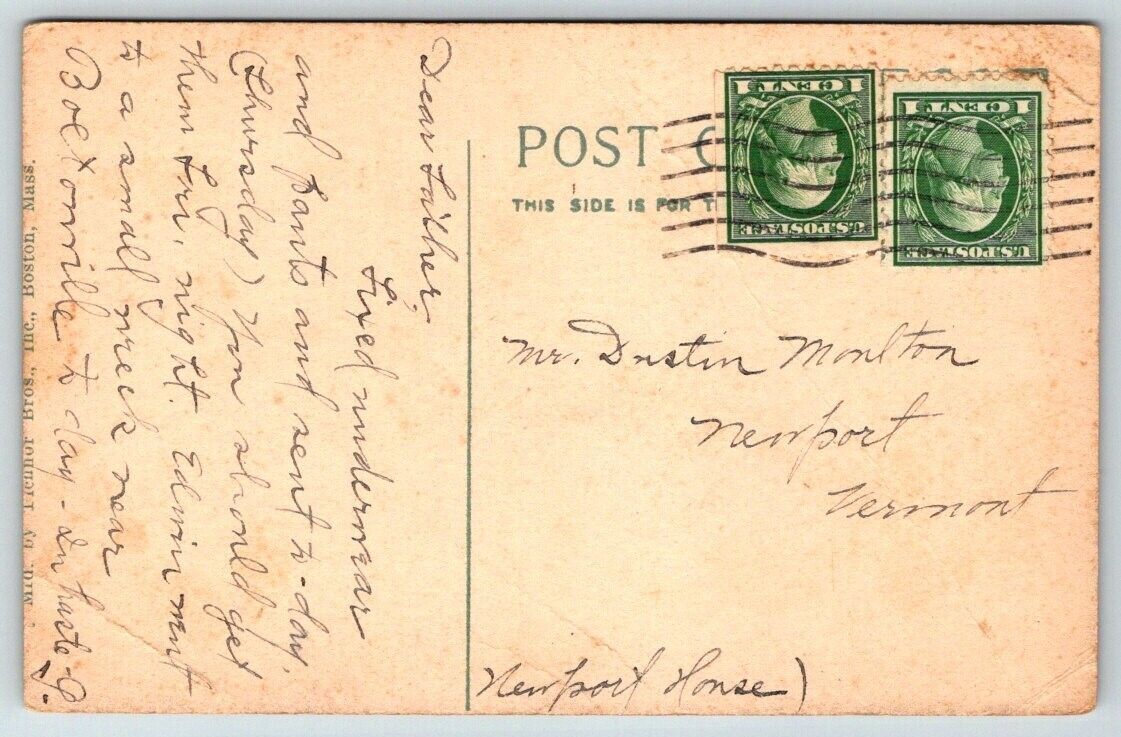 Dear Father,
Fixed underwear
and pants and sent to-day.
(Thursday) You should get
them Fri, night. Edwin went
to a small wreck near
Boltonville to day - In haste -
POST C
THIS SIDE IS FOR T
1 CENT 1
U.S. POSTAGE
1 CENT 1
U.S. POSTAGE
Mr. Dustin Moulton
Newport
Vermont
Newport House)
Mfd. by Tichnor Bros., Inc., Boston, Mass.